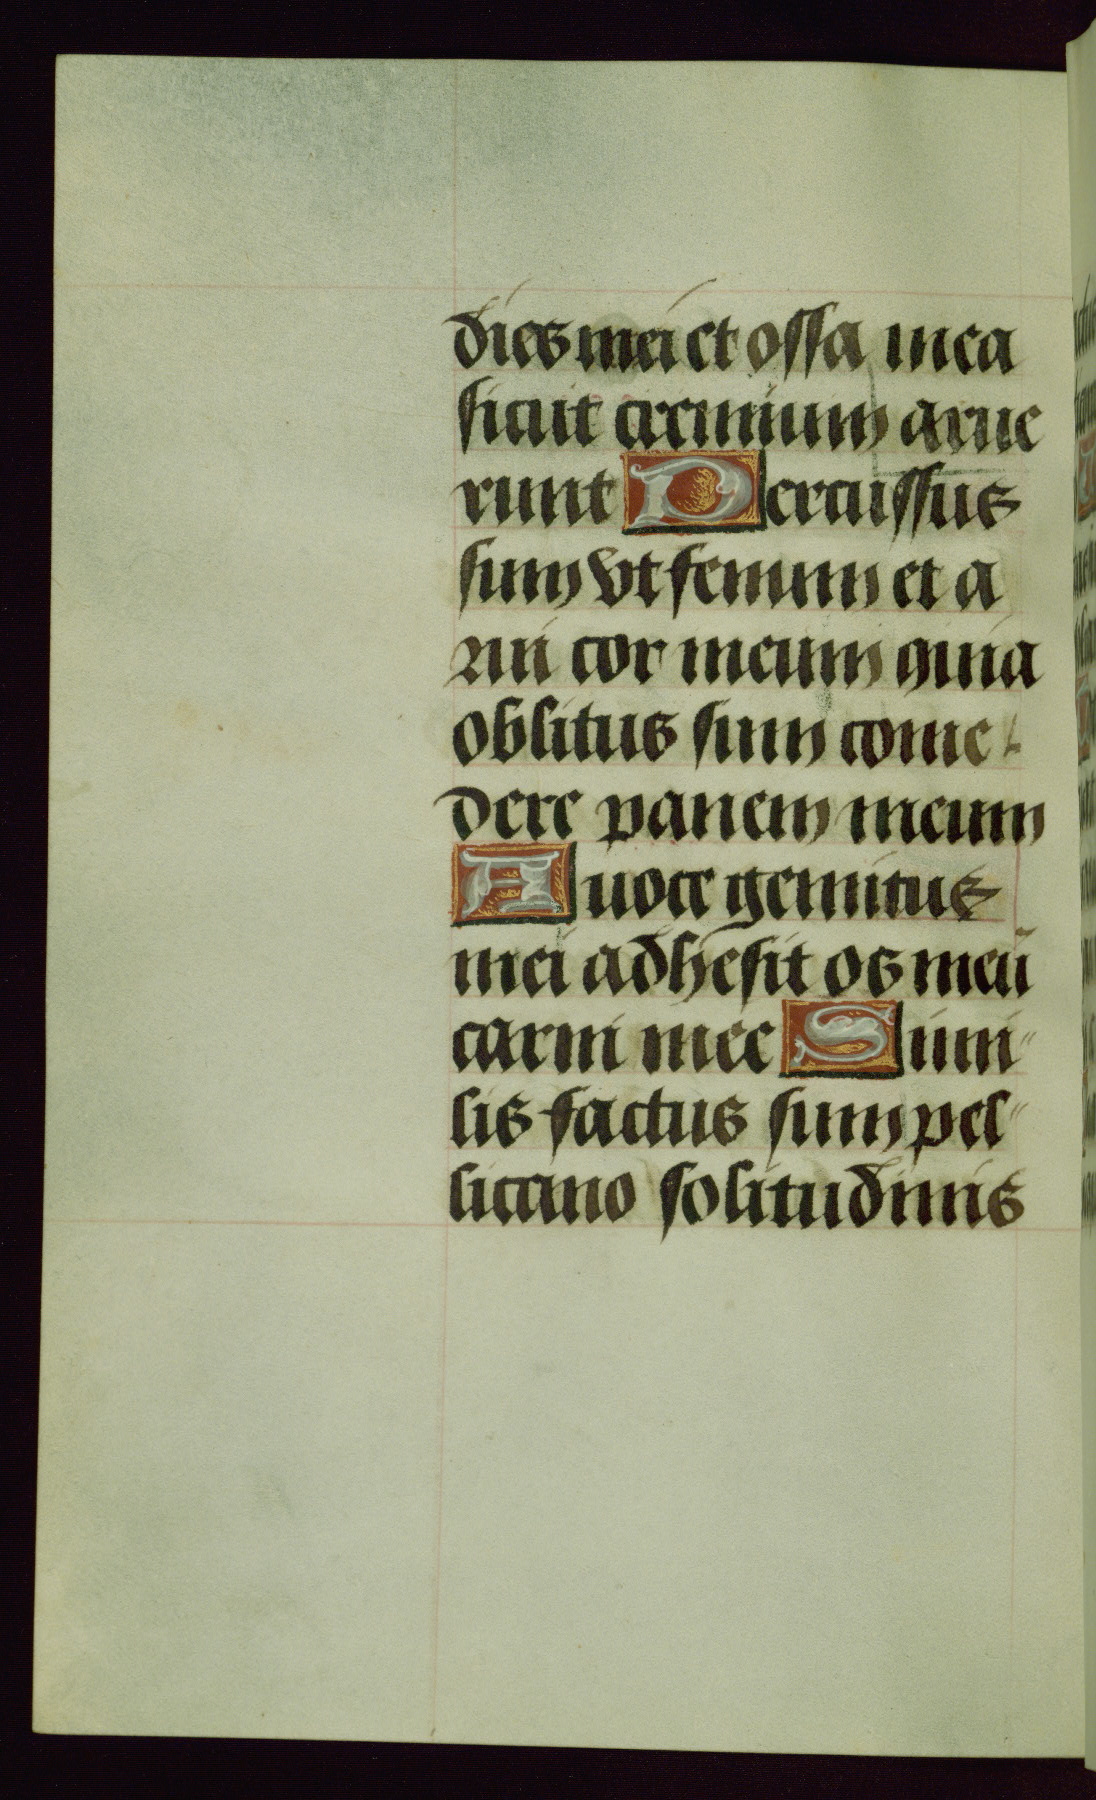 dies mei et ossa mea
sicut cremium arue
runt Percussus
sum vt fenum et a
rui cor meum quia
oblitus sum come
dere panem meum
A uoce gemitus
mei adhesit os meū
carni mee Simi
lis factus sum pel
licano solitudinis